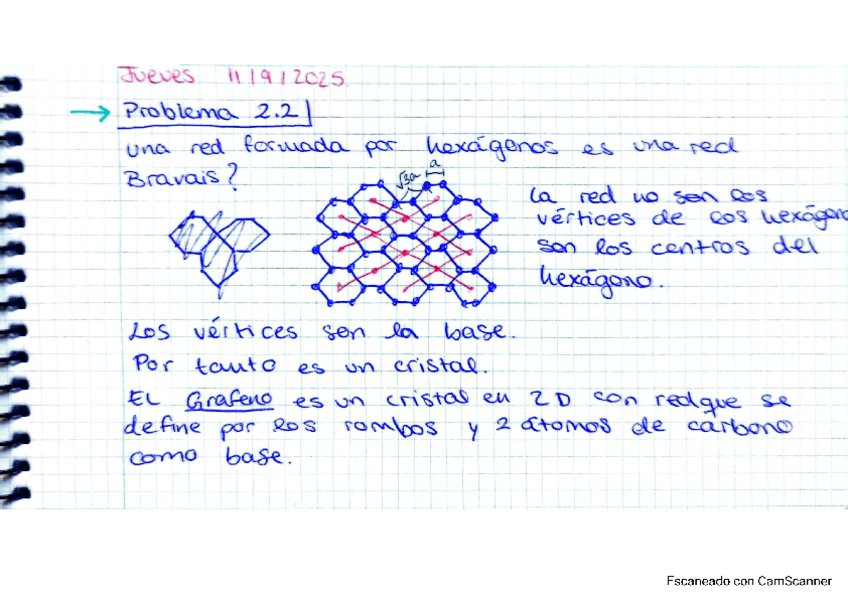 Jueves 11/9/2025
→ Problema 2.2
una red formada por hexágonos es una red
Bravais?
√3a
a
La red no son los
vértices de los hexágono
son los centros del
hexágono.
Los vértices son la base.
Por tanto es un cristal.
EL Grafeno es un cristal en 2D con red que se
define por los rombos y 2 átomos de carbono
como base.
Escaneado con CamScanner